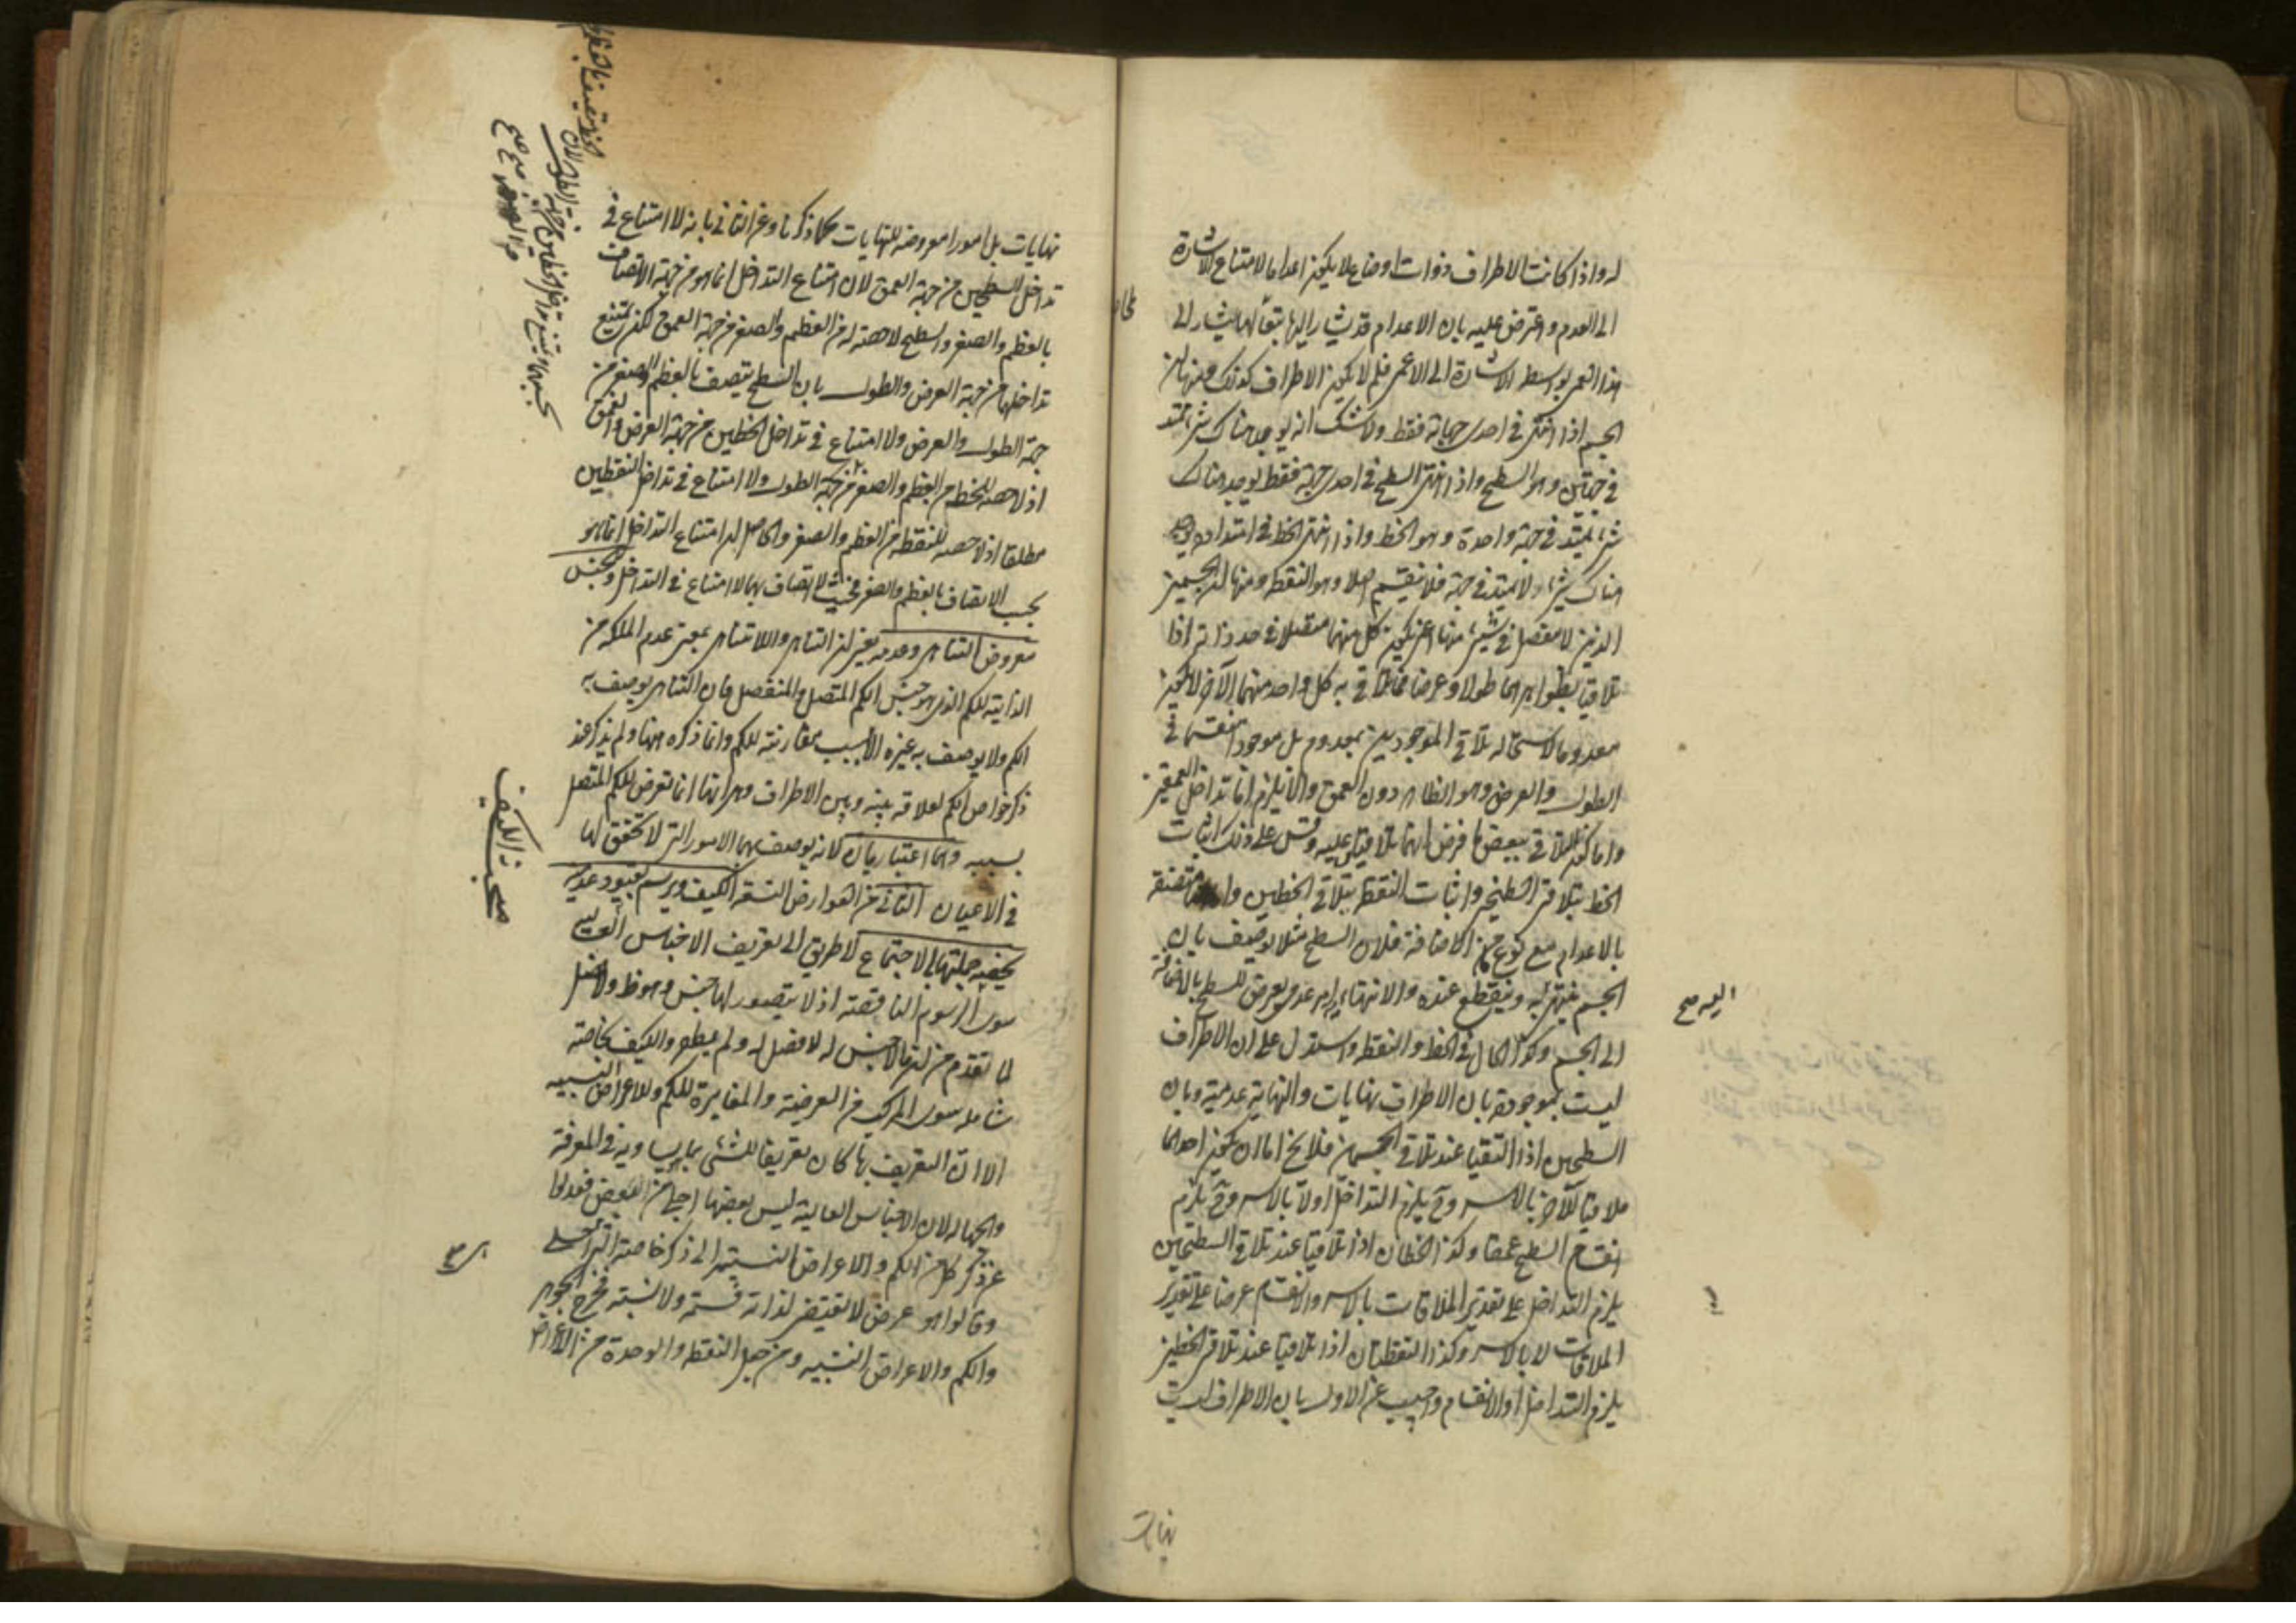 له واذا كانت الاطراف ذوات اوضاع لا يكون اعداما لامتناع الاشارة
الى العدم واعترض عليه بان الاعدام قد يشار اليها تبعا لها يشار الى
هذا العمى بواسطة الاشارة الى الاعمى فلم لا يكون الاطراف كذلك ومنها ان
الجسم اذا انتهى في احدى جهاته فقط ولا شك انه يوجد هناك شئ يمتد
في جهتين وهو السطح واذا انتهى السطح في احدى جهة فقط يوجد هناك
شئ يمتد في جهة واحدة وهو الخط واذا انتهى الخط في امتداده يوجد
هناك شئ لا يمتد في جهة فلا ينقسم اصلا وهو النقطة ومنها ان الجسمين
الذين لا مفصل في شئ منهما اعني يكون كل منهما متصلا في حد ذاته اذا
تلاقيا بظواهرهما طولا وعرضا فما تلاقى به كل واحد منهما الآخر لا يكون
معدوما لاستحالة تلاقي الموجودين بمعدوم بل موجود منقسما في
الطول والعرض وهو الظاهر دون العمق والا يلزم اما تداخل العمقين
واما كون التلاقي ببعض ما فرض انهما تلاقيا عليه وقس على ذلك اثبات
الخط بتلاقي السطحين واثبات النقطة بتلاقي الخطين متصفة
بالاعدام مع نوع من الاضافة فلان السطح مثلا يوصف بان
الجسم ينتهي به وينقطع عنده والانتهاء امر عدمي يعرض للسطح بالاضافة
اليه صح
الى الجسم وكذا الحال في الخط والنقطة واستدل على ان الاطراف
ليست بموجودة بان الاطراف نهايات والنهاية عدمية وبان
السطحين اذا التقيا عند تلاقي الجسمين فلا يخ اما ان يكون احدهما
ملاقيا للآخر بالاسر وح يلزم التداخل او لا بالاسر وح يلزم
انقسام السطح عمقا وكذا الخطان اذا تلاقيا عند تلاقي السطحين
يلزم التداخل على تقدير الملاقات بالاسر والانقسام عرضا على تقدير
الملاقات لا بالاسر وكذا النقطتان اذا تلاقيا عند تلاقي الخطين
يلزم التداخل او الانقسام واجيب عن الاول بان الاطراف ليست
نهايات
نهايات بل امورا معروضة للنهايات كما ذكرنا وعن الثاني بانه لا امتناع في
تداخل السطحين من جهة العمق لان امتناع التداخل انما هو من جهة الاتصاف
بالعظم والصغر والسطح لا حصة له من العظم والصغر من جهة العمق لكن يمتنع
تداخلهما من جهة العرض والطول بان السطح يتصف بالعظم والصغر من
جهة الطول والعرض ولا امتناع في تداخل الخطين من جهة العرض والعمق
اذ لا حصة للخط من العظم والصغر من جهة الطول ولا امتناع في تداخل النقطتين
مطلقا اذ لا حصة للنقطة من العظم والصغر والحاصل ان امتناع التداخل انما هو
بحسب الاتصاف بالعظم والصغر فحيث لا اتصاف بهما لا امتناع في التداخل والجنس
معروض التناهي وعدمه يعني ان التناهي واللاتناهي بمعنى عدم الملكة من
الذاتية للكم الذي هو جنس الكم المتصل والمنفصل فان التناهي يوصف به
الكم ولا يوصف به غيره الا بسبب مقارنته للكم وانما ذكره ههنا ولم يذكر عند
ذكر خواص الكم لعلاقة بينه وبين الاطراف وهي انها انما تعرض للكم المتصل
بسببه وهما اعتباريان لانه يوصف بهما الامور التي لا تحقق لها
مبحث الكيف
في الاعيان الثاني من العوارض التسعة الكيف ويرسم بقيود عدمية
يخصه جملتها بالاجتماع لا طريق الى تعريف الاجناس العالية
سوى الرسوم الناقصة اذ لا يتصور لها جنس وهو ظ ولا فصل
لما تقدم من ان ما لا جنس له لا فصل له ولم يظفر للكيف بخاصة
شاملة سوى المركب من العرضية والمغايرة للكم وللاعراض النسبية
الا ان التعريف بها كان تعريفا للشئ بما يساويه في المعرفة
والجهالة لان الاجناس العالية ليس بعضها اجلى من البعض فعدلوا
عن ذكر كل من الكم والاعراض النسبية الى ذكر خاصته التي اجلى
وقالوا هو عرض لا يقتضي لذاته قسمة ولا نسبة فخرج الجوهر
والكم والاعراض النسبية ومن جعل النقطة والوحدة من الاعراض